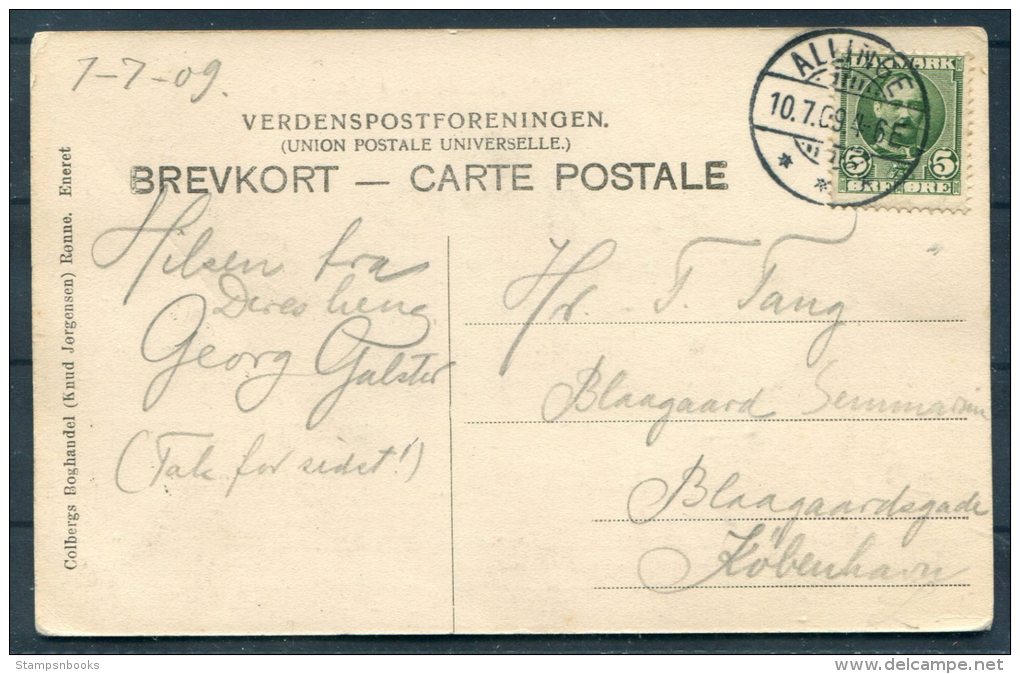 7-7-09.
VERDENSPOSTFORENINGEN.
(UNION POSTALE UNIVERSELLE.)
BREVKORT — CARTE POSTALE
ALLINGE
10.7.09 4-6E
DANMARK
5 5
ØRE ØRE
Colbergs Boghandel (Knud Jørgensen) Rønne. Eneret
Hilsen fra
Deres heng.
Georg Galster
(Tak for sidst!)
Hr. T. Tang
Blaagaard Seminarium
Blaagaardsgade
København
Stampsnbooks
delcampe.net